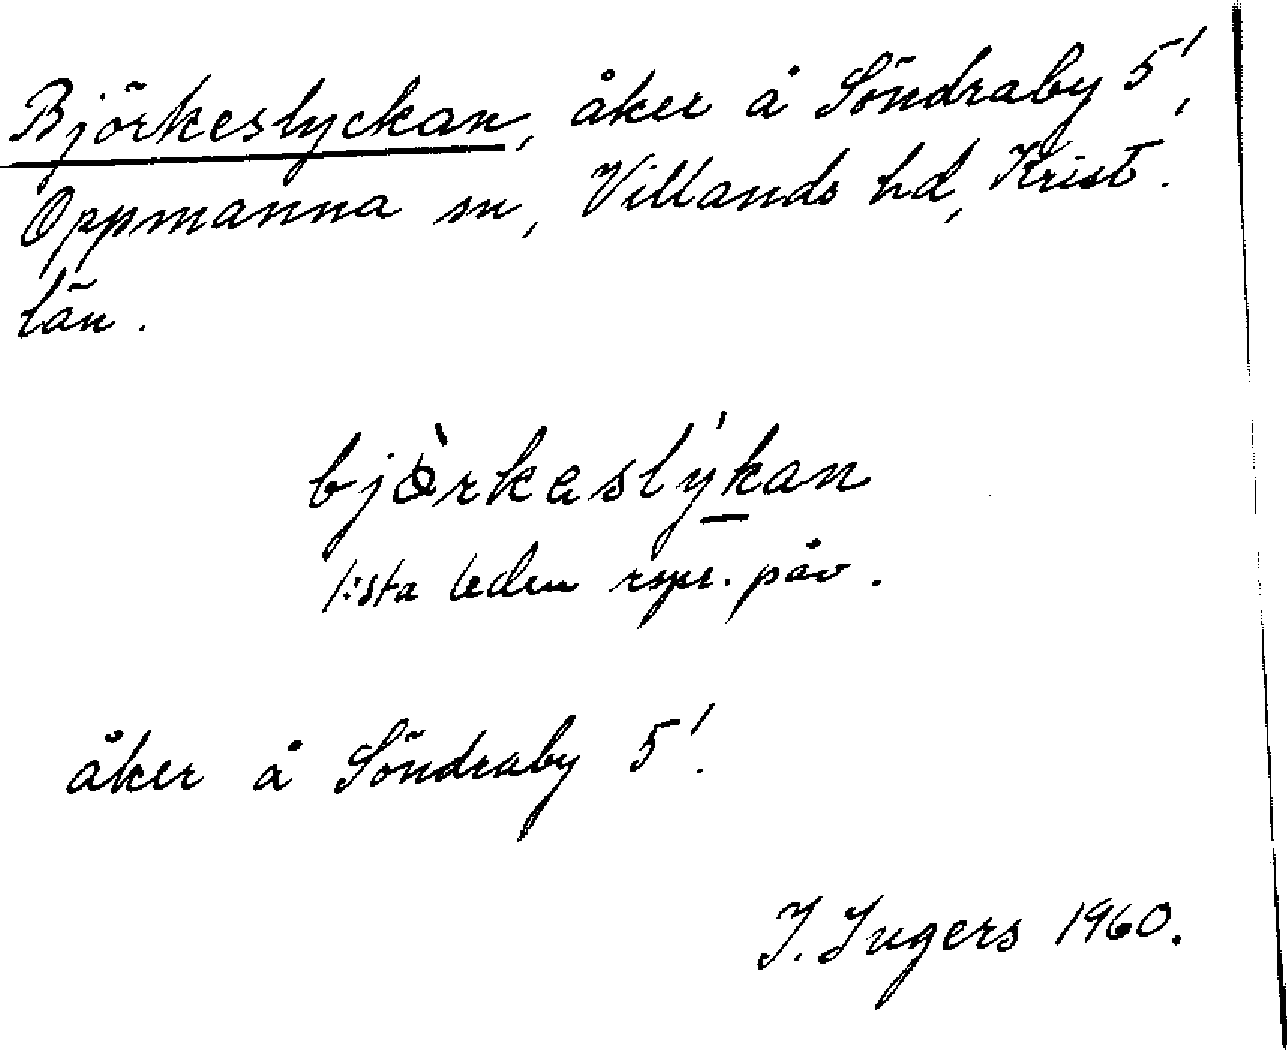 Björkeslyckan, åker å Söndraby 5',
Oppmanna sn, Villands hd, Krist.
län.
bjòrkaslýkan
1:sta leden
åker å Söndraby 5'.
I. Ingers 1960.